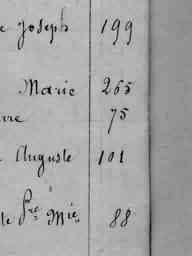 e Joseph 199
Marie 265
rre 75
Auguste 101
de Pre Mie 88